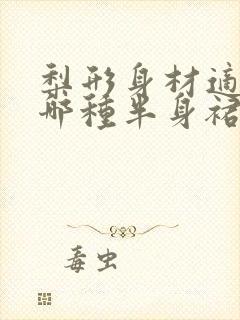 梨形身材適
哪種半身裙
毒虫